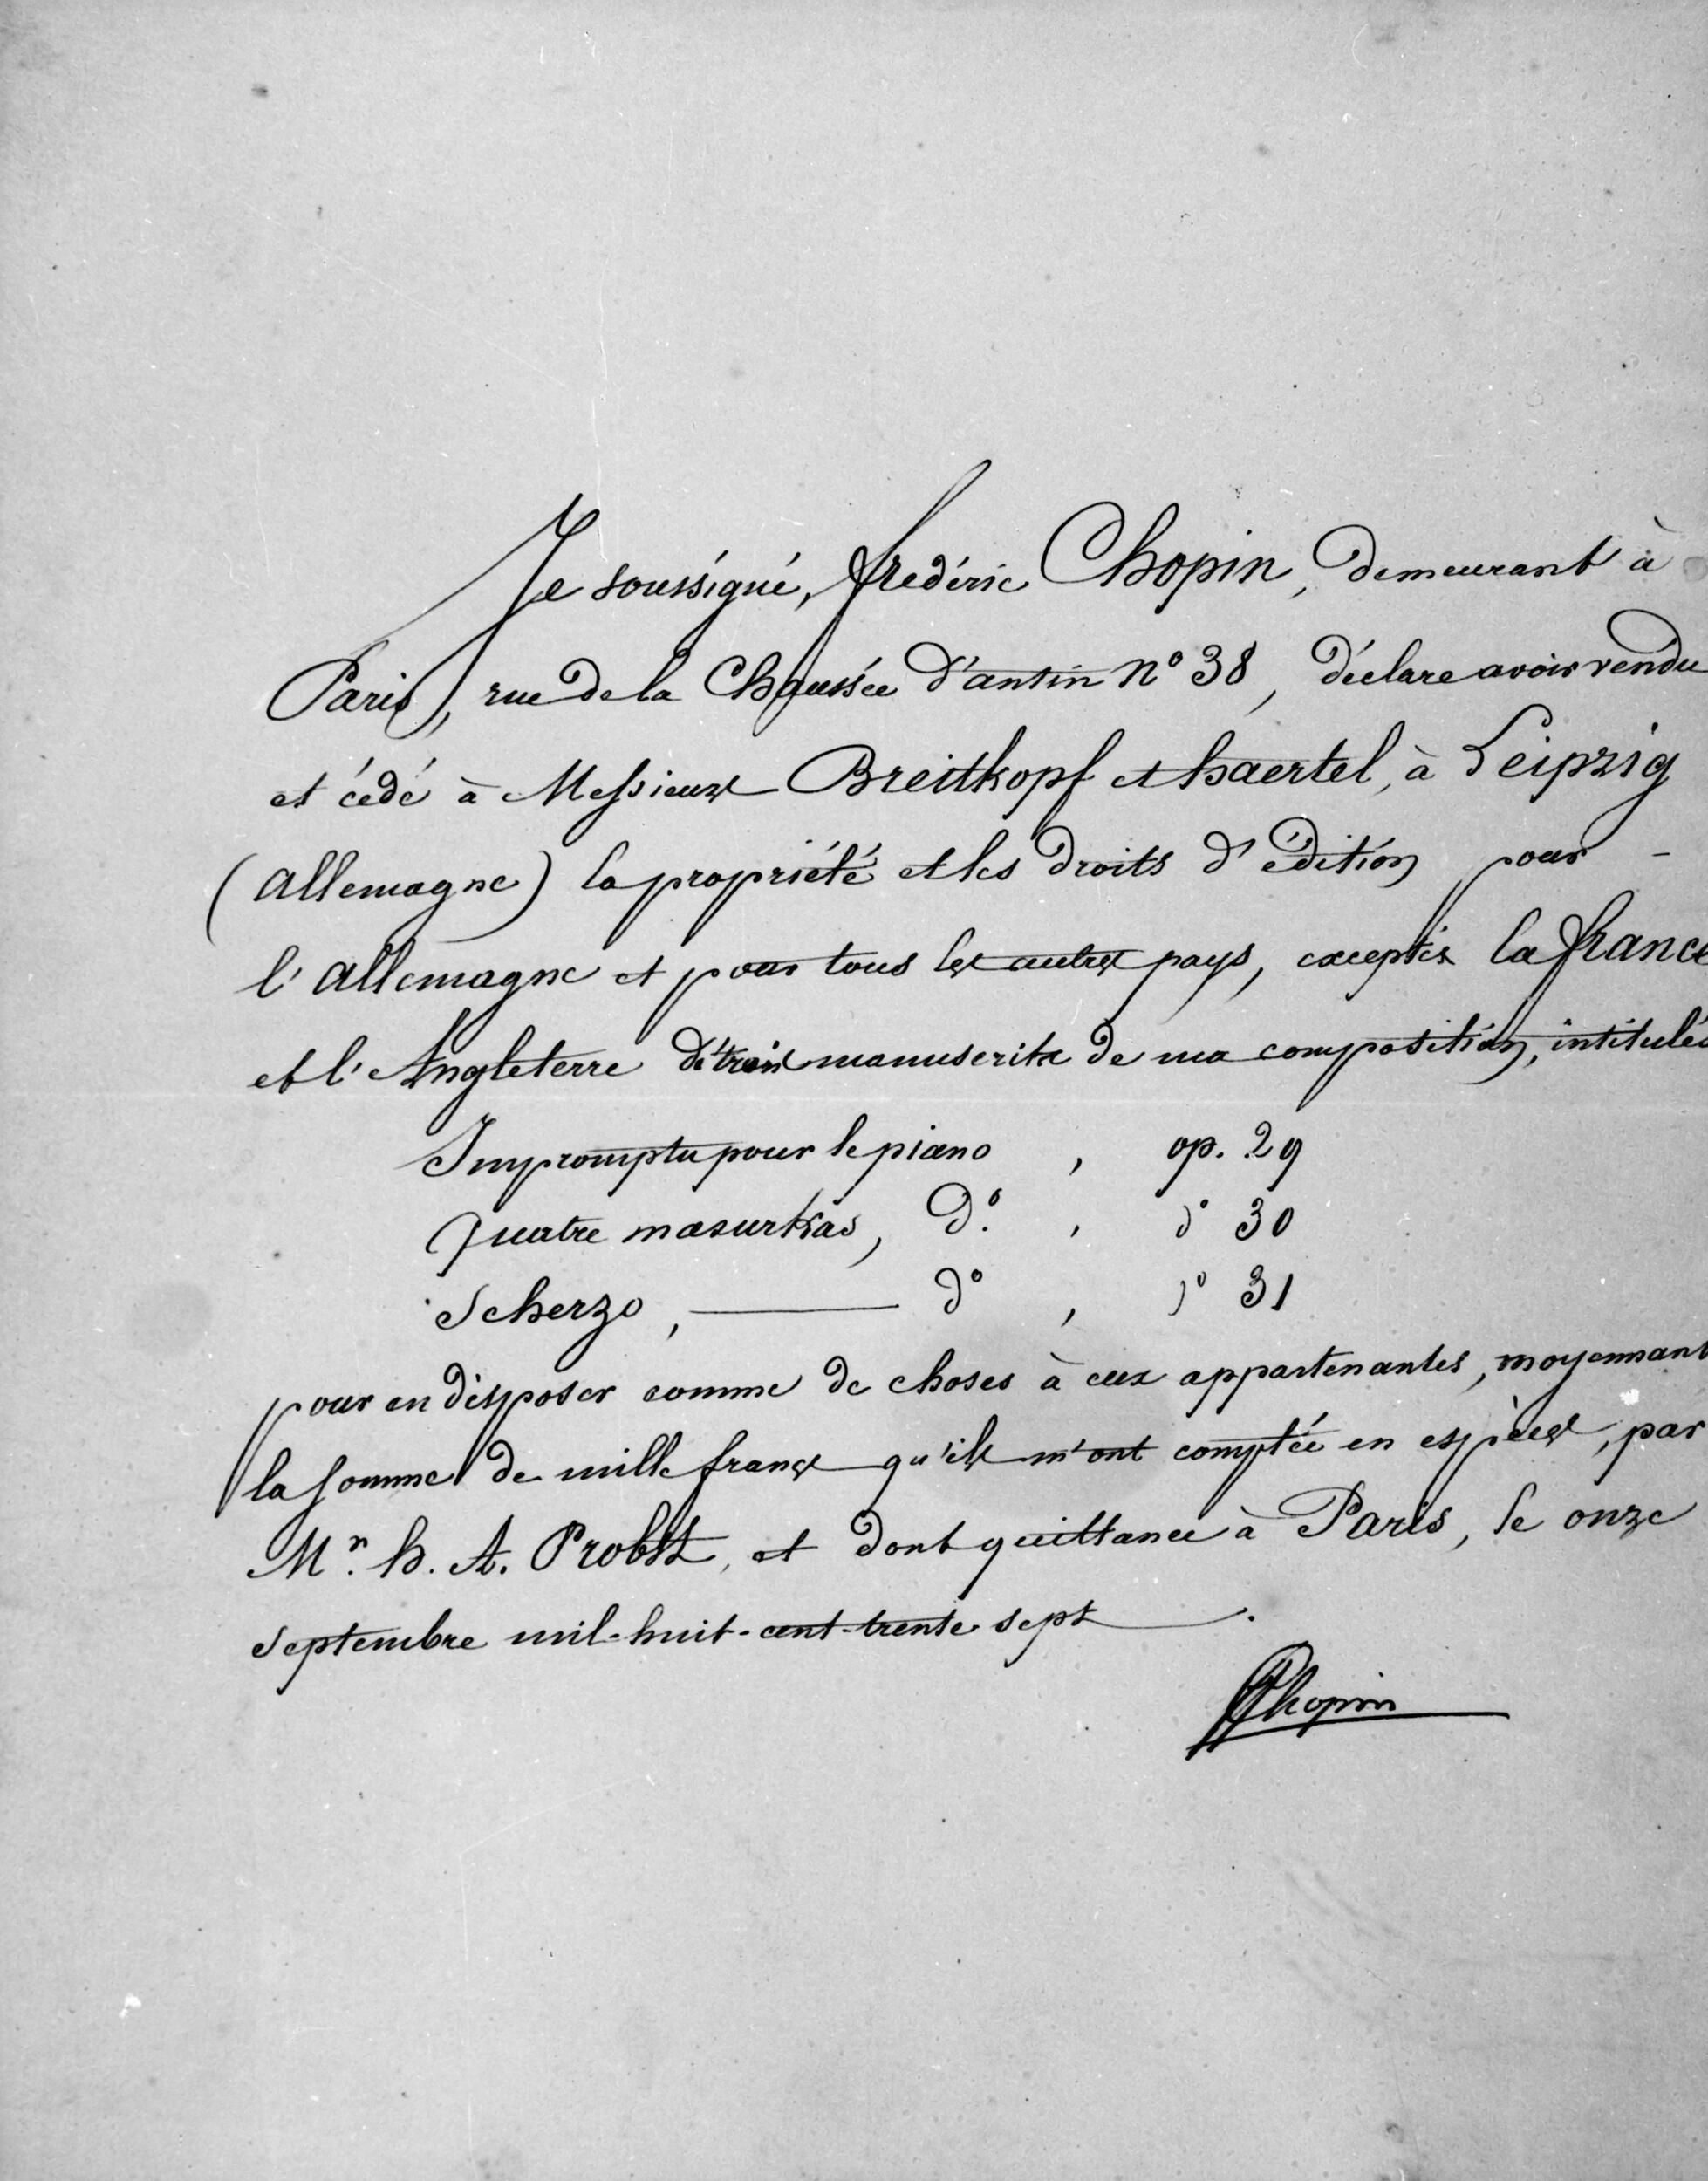 Je soussigné, frédéric Chopin, demeurant à
Paris, rue de la Chaussée d'antin n° 38, déclare avoir vendu
et cédé à Messieurs Breitkopf et haertel, à Leipzig
(allemagne) la propriété et les droits d'édition pour -
l'allemagne et pour tous les autres pays, exceptés la france
et l'Angleterre de trois manuscrits de ma composition, intitulés
Impromptu pour le piano , op. 29
Quatre masurkas, d°. , d° 30
Scherzo, — d° , d° 31
pour en disposer comme de choses à eux appartenantes, moyennant
la somme de mille francs qu'ils m'ont comptée en espèces, par
Mr. h. A. Probst, et dont quittance à Paris, le onze
septembre mil-huit-cent-trente-sept.
FChopin